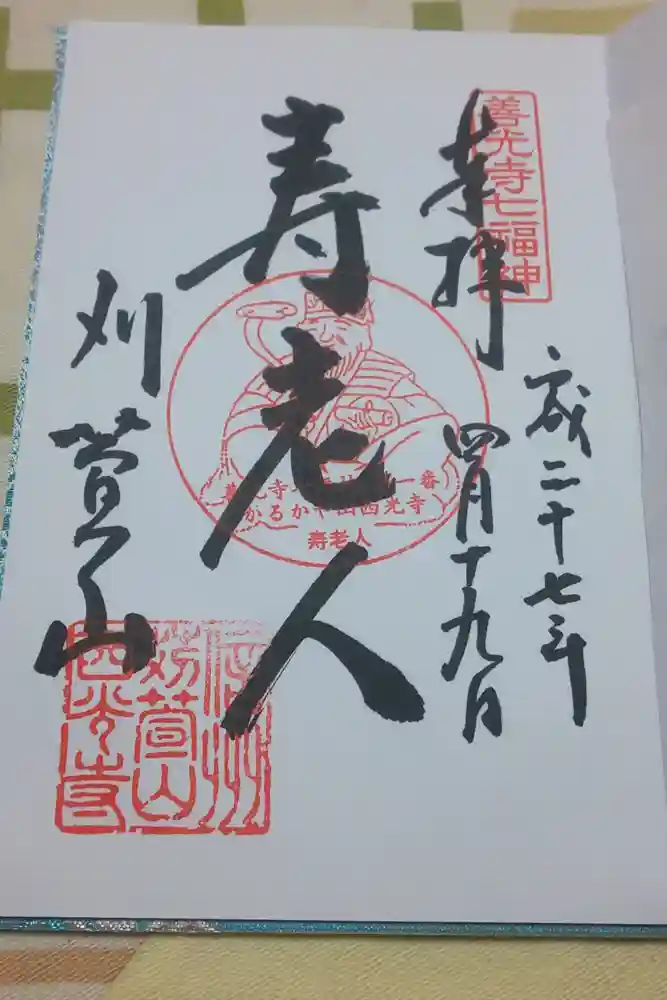 善光寺七福神
奉拝
成二十七年
四月十九日
寿老人
かるかや山西光寺
寿老人
刈萱山
信州
苅萱山
西光寺